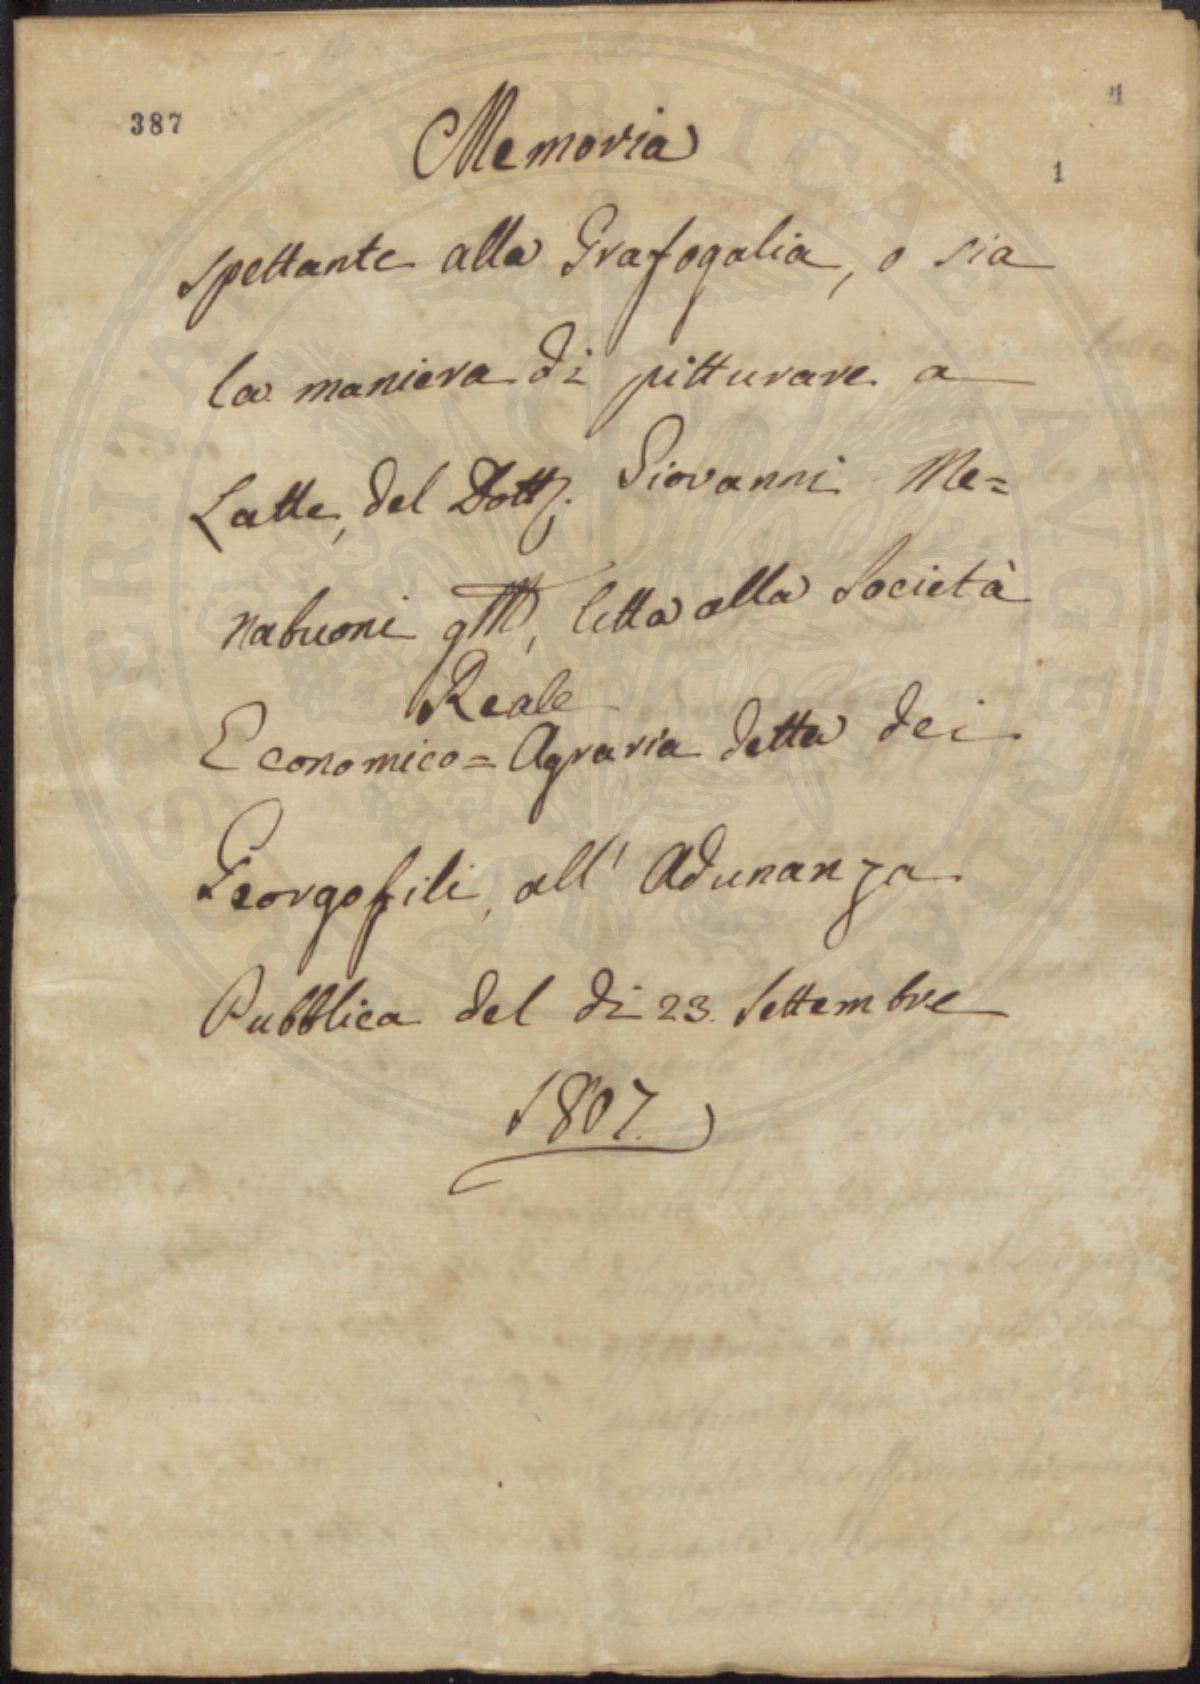 387
1
Memoria
spettante alla Grafogalia, o sia
la maniera di pitturare a
Latte, del Dott. Giovanni Me=
nabuoni letta alla Società
Reale
Economico=Agraria detta dei
Georgofili, all' Adunanza
Pubblica del di 23. Settembre
1807.
PROSPERITATI PUBLICAE AUGENDAE